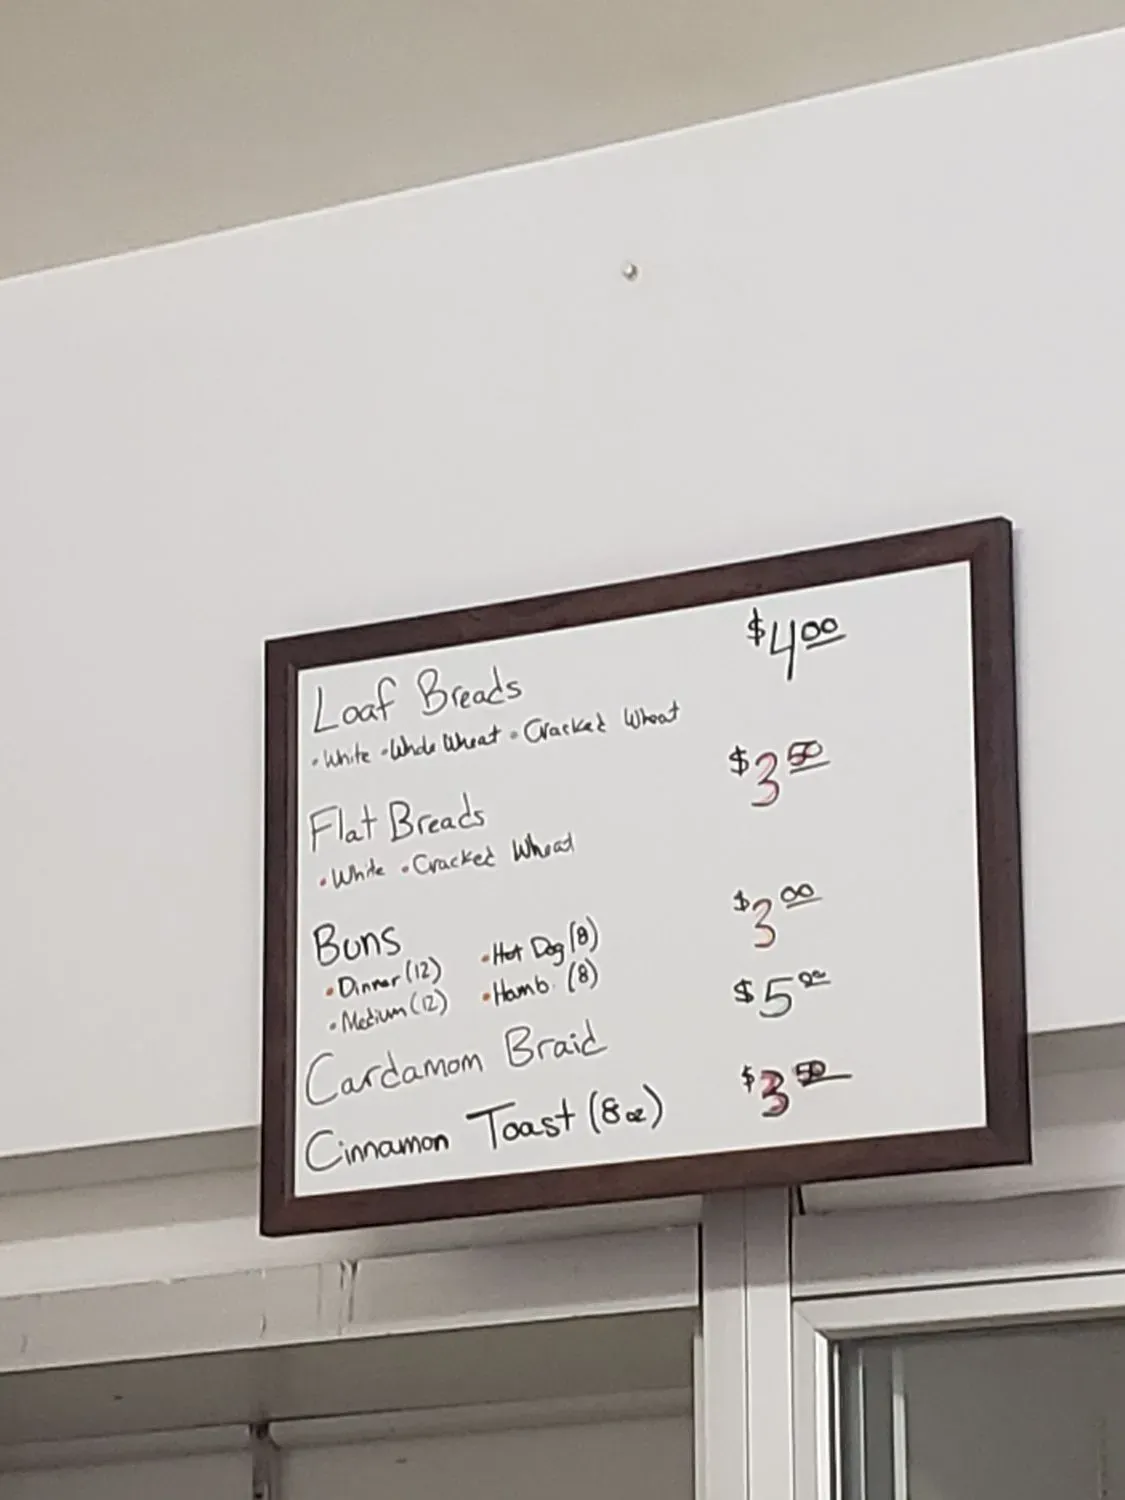 Loaf Breads $4.00
• White • Whole Wheat • Cracked Wheat
Flat Breads $3.50
• White • Cracked Wheat
Buns $3.00
• Dinner (12) • Hot Dog (8)
• Medium (12) • Hamb. (8)
Cardamom Braid $5.00
Cinnamon Toast (8oz) $3.50